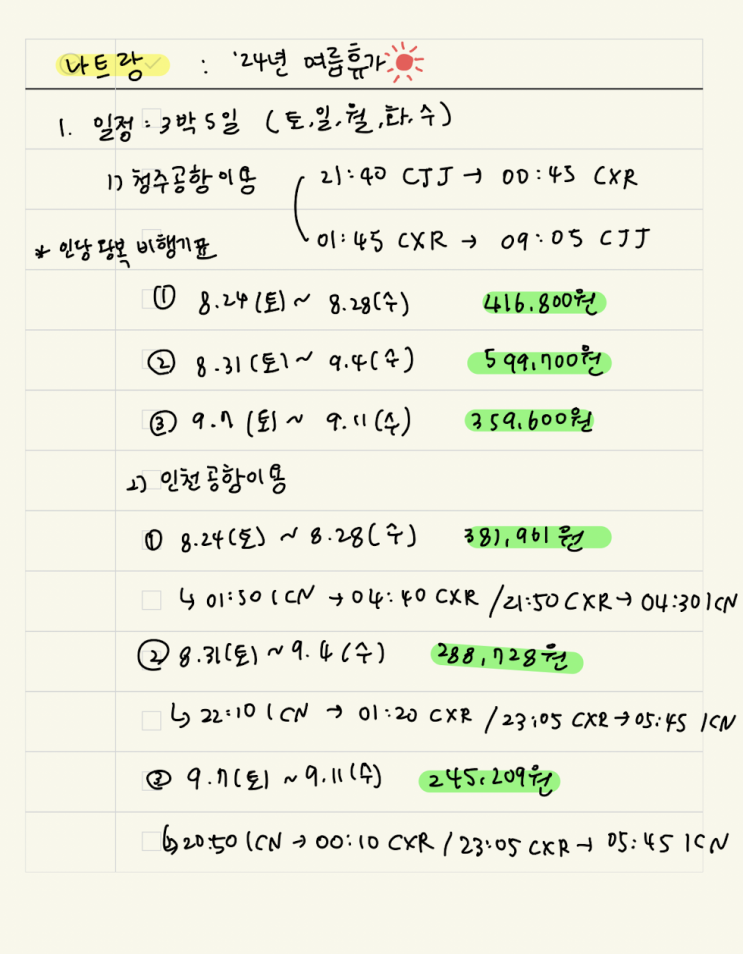 나트랑 : '24년 여름휴가
1. 일정 : 3박 5일 (토,일,월,화,수)
1) 청주공항이용 21:40 CJJ → 00:45 CXR
01:45 CXR → 09:05 CJJ
* 인당 왕복 비행기표
① 8.24(토) ~ 8.28(수) 416,800원
② 8.31(토) ~ 9.4(수) 599,700원
③ 9.7(토) ~ 9.11(수) 359,600원
2) 인천공항이용
① 8.24(토) ~ 8.28(수) 381,961원
↳ 01:50 ICN → 04:40 CXR / 21:50 CXR → 04:30 ICN
② 8.31(토) ~ 9.4(수) 288,728원
↳ 22:10 ICN → 01:20 CXR / 23:05 CXR → 05:45 ICN
③ 9.7(토) ~ 9.11(수) 245,209원
↳ 20:50 ICN → 00:10 CXR / 23:05 CXR → 05:45 ICN